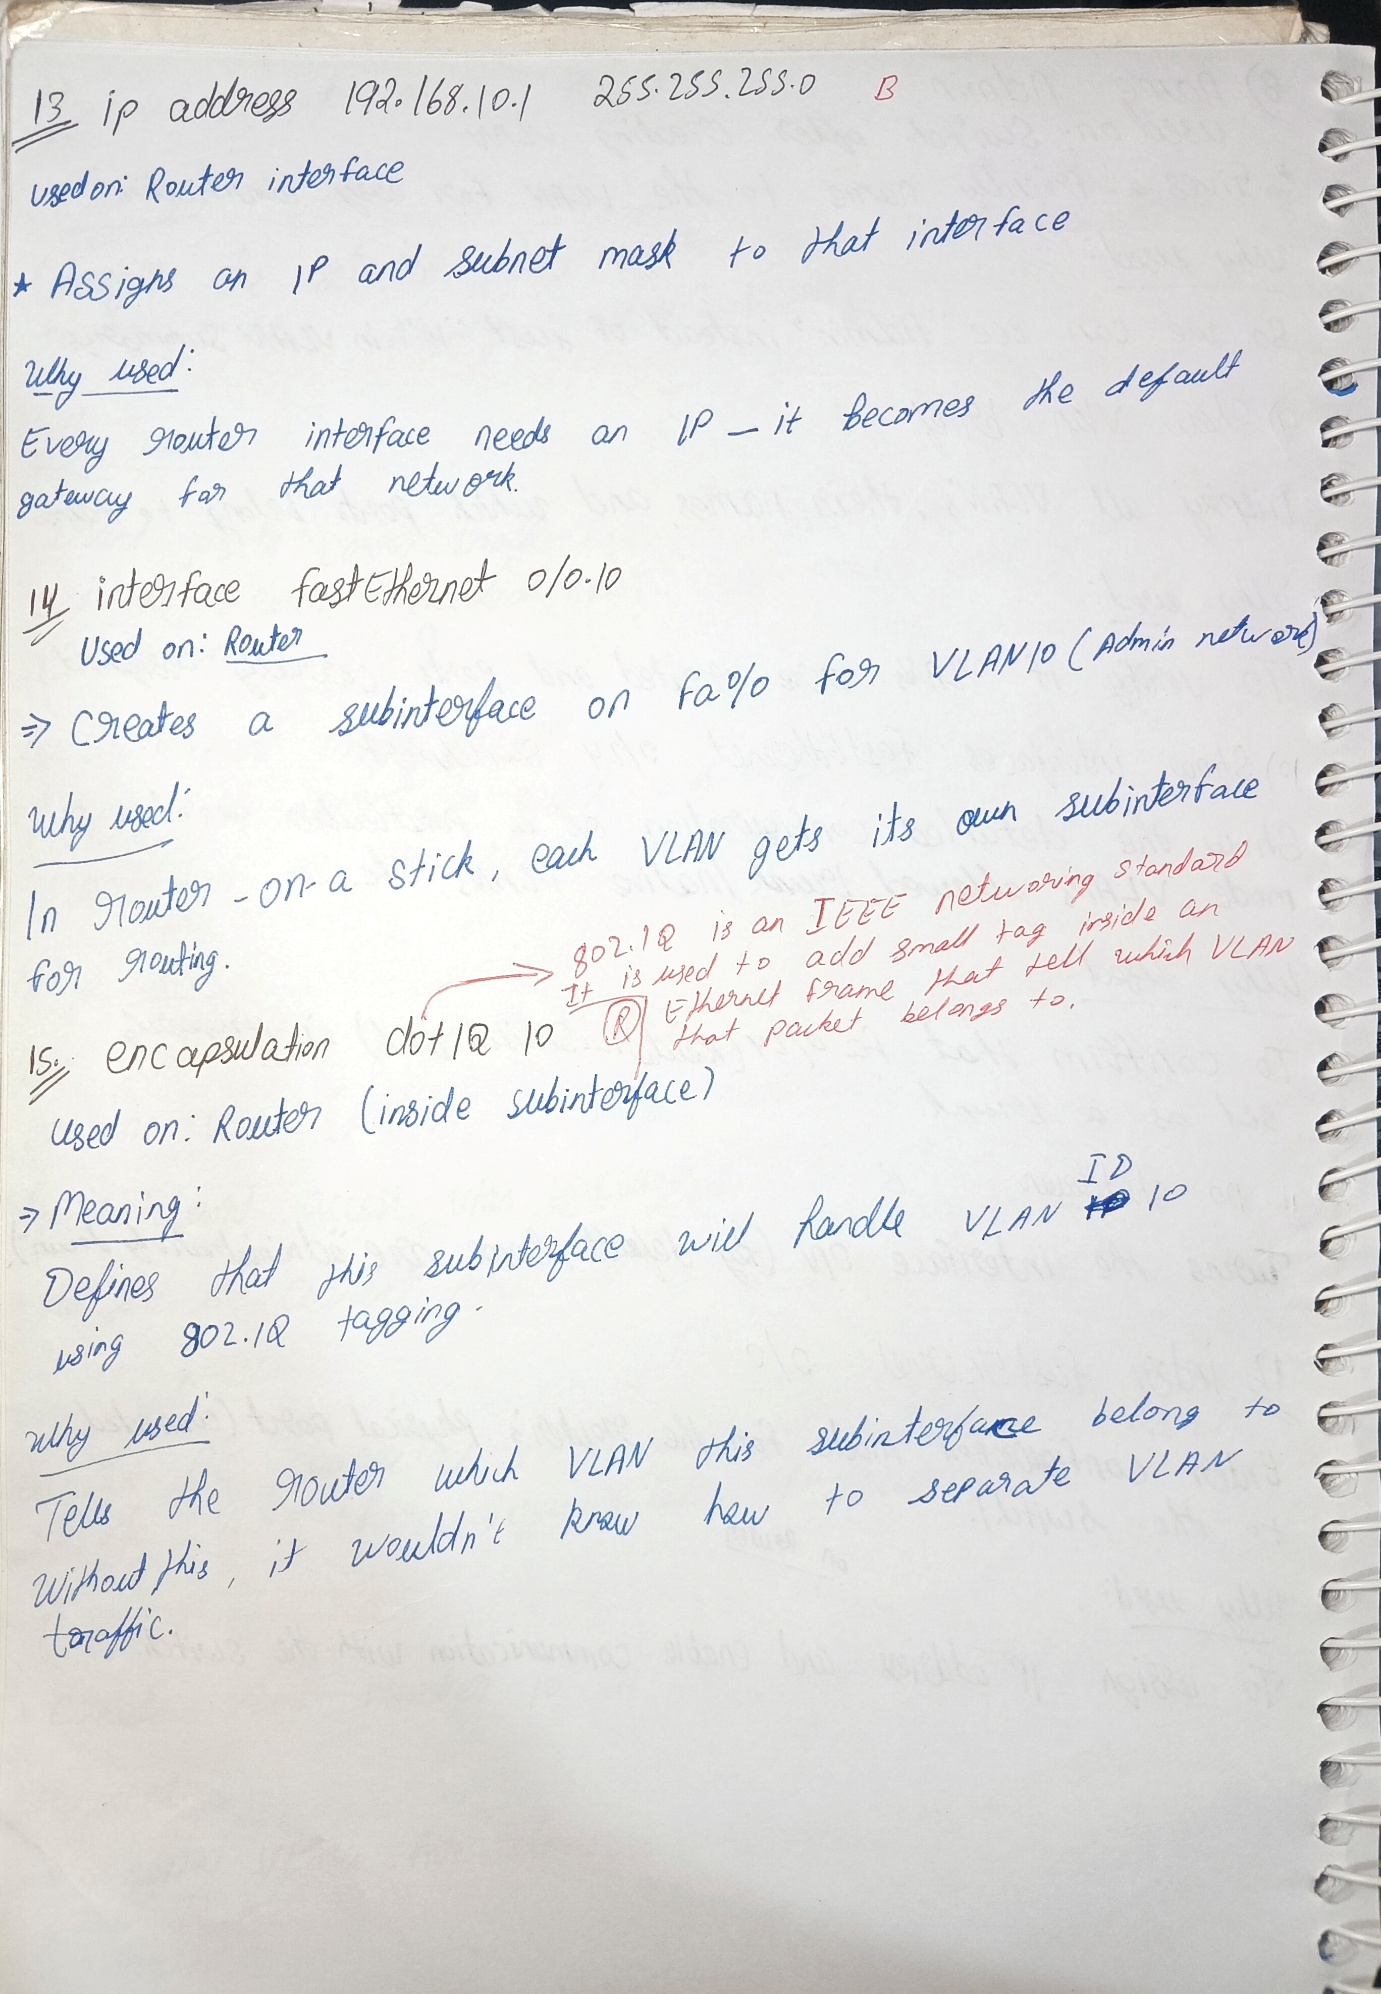 13 ip address 192.168.10.1 255.255.255.0 B
used on: Router interface
* Assigns an IP and subnet mask to that interface
Why used:
Every router interface needs an IP – it becomes the default
gateway for that network.
14 interface fastEthernet 0/0.10
Used on: Router
⇒ Creates a subinterface on fa0/0 for VLAN10 (Admin network)
Why used:
In router-on-a stick, each VLAN gets its own subinterface
for routing.
802.1Q is an IEEE networing standard
It is used to add small tag inside an
Ethernet frame that tell which VLAN
that packet belongs to.
15. encapsulation dot1Q 10 R
Used on: Router (inside subinterface)
⇒ Meaning:
Defines that this subinterface will handle VLAN ID 10
using 802.1Q tagging.
Why used:
Tells the router which VLAN this subinterface belong to
Without this, it wouldn't know how to separate VLAN
traffic.